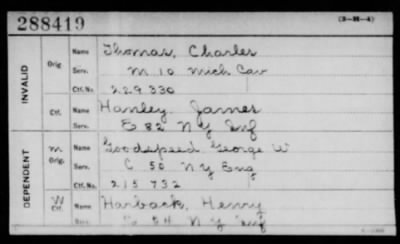 288419
(3-M-4)
INVALID
Orig. Name Thomas, Charles
Serv. M 10 Mich Cav
Ctf. No. 229 330
Ctf. Name Hanley James
Serv. E 82 N Y Inf
DEPENDENT
M Orig. Name Goodspeed George W
Serv. C 50 N Y Eng
Ctf. No. 215 732
W Ctf. Name Harback, Henry
Serv. 54 N Y Inf